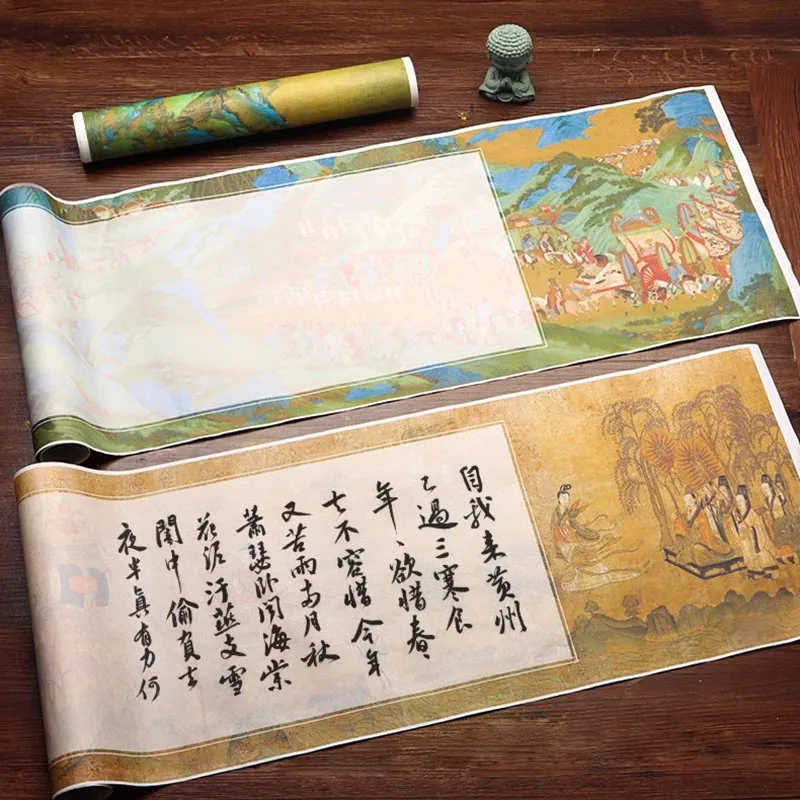 自我来黄州
已過三寒食
年、欲惜春、
去不容惜今年
又苦雨兩月秋
蕭瑟卧聞海棠
花泥汙燕支雪
闇中偷負去
夜半真有力何